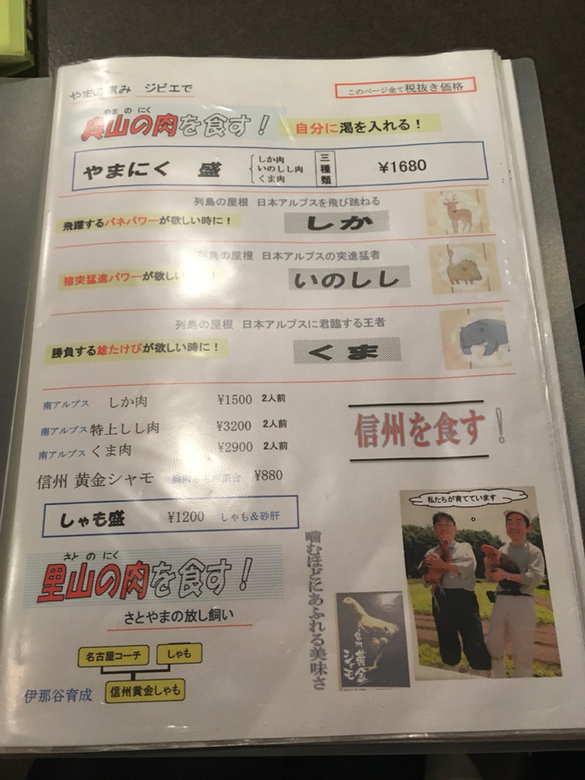 やまの恵み ジビエで
このページ全て税抜き価格
やまのにく
奥山の肉を食す！ 自分に渇を入れる！
やまにく 盛 しか肉 いのしし肉 くま肉 三種類 ¥1680
列島の屋根 日本アルプスを飛び跳ねる
飛躍するバネパワーが欲しい時に！ しか
列島の屋根 日本アルプスの突進猛者
猪突猛進パワーが欲しい いのしし
列島の屋根 日本アルプスに君臨する王者
勝負する雄たけびが欲しい時に！ くま
南アルプス しか肉 ¥1500 2人前
南アルプス 特上しし肉 ¥3200 2人前
南アルプス くま肉 ¥2900 2人前
信州 黄金シャモ ¥880
信州を食す！
しゃも盛 ¥1200 しゃも&砂肝
私たちが育てています
さとのにく
里山の肉を食す！
さとやまの放し飼い
噛むほどにあふれる美味さ
信州黄金シャモ
名古屋コーチ しゃも
信州黄金しゃも
伊那谷育成